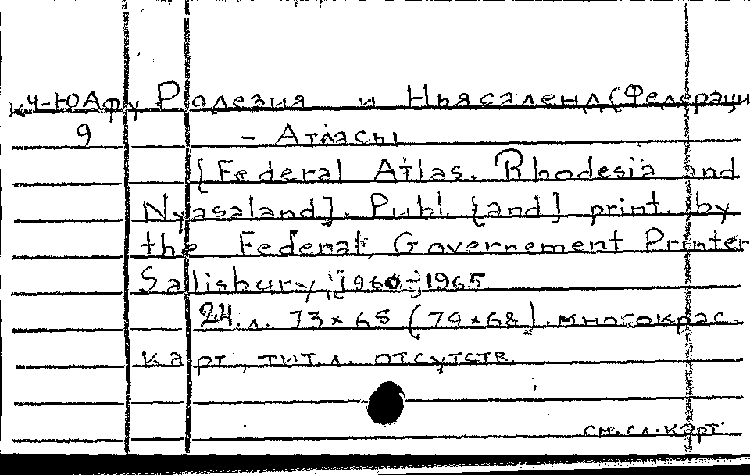 Кч-ЮАфу Родезия и Ньясаленд (Федераци
9 - Атласы
[Federal Atlas. Rhodesia and
Nyasaland]. Publ. [and] print. by
the Federal Governement Printer
Salisbury, [1960-]1965
24 л. 73×68 (74×68) многокрас.
карт, тит. л. отсутств.
см. сл. карт.